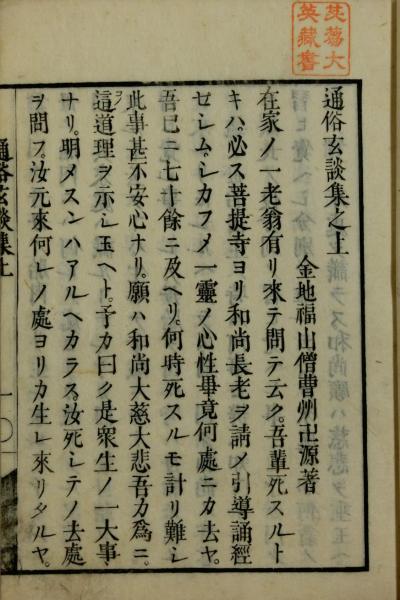 通俗玄談集之上
金地福山僧曹州卍源著
在家ノ一老翁有リ來テ問テ云ク。吾輩死スルト
キハ。必ス菩提寺ヨリ和尚長老ヲ請メ引導誦經
セシム。シカフメ一靈ノ心性畢竟何處ニカ去ヤ。
吾已ニ七十餘ニ及ヘリ。何時死スルモ計リ難シ
此事甚不安心ナリ。願ハ和尚大慈大悲吾カ為ニ。
這道理ヲ示シ玉ヘト。予カ曰ク是衆生ノ一大事
ナリ。明メスンハアルヘカラス。汝死シテノ去處
ヲ問フ。汝元來何レノ處ヨリカ生レ來リタルヤ。
通俗玄談集上
一